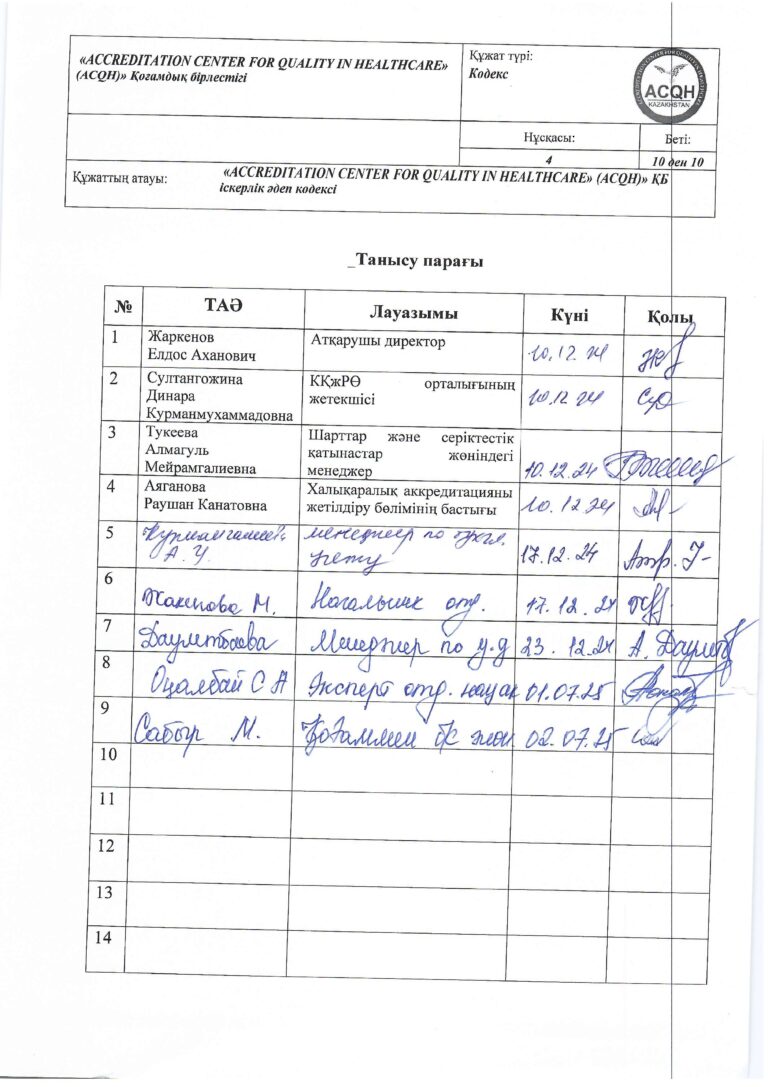 «ACCREDITATION CENTER FOR QUALITY IN HEALTHCARE»
(ACQH)» Қоғамдық бірлестігі
Құжат түрі:
Кодекс
ACCREDITATION CENTER FOR QUALITY IN HEALTHCARE
ACQH
KAZAKHSTAN
Нұсқасы:
Беті:
4
10 ден 10
Құжаттың атауы:
«ACCREDITATION CENTER FOR QUALITY IN HEALTHCARE» (ACQH)» ҚБ
іскерлік әдеп кодексі
_Танысу парағы
№ ТАӘ Лауазымы Күні Қолы
1 Жаркенов Атқарушы директор
Елдос Аханович 10.12.24
2 Султангожина КҚжРӨ орталығының
Динара жетекшісі 10.12.24
Курманмухаммадовна
3 Тукеева Шарттар және серіктестік
Алмагуль қатынастар жөніндегі
Мейрамгалиевна менеджер 10.12.24
4 Аяганова Халықаралық аккредитацияны
Раушан Канатовна жетілдіру бөлімінің бастығы 10.12.24
5 менеджер по бухгл.
А. У. учету 17.12.24
6 Жакипова М. Начальник отд. 17.12.24
7 Даулетбаева Менеджер по у.д 23.12.24 А. Даулетб
8 Оңалбай С А Эксперт отд. 01.07.25
9 Сабыр М. Қоғаммен 02.07.25
10
11
12
13
14